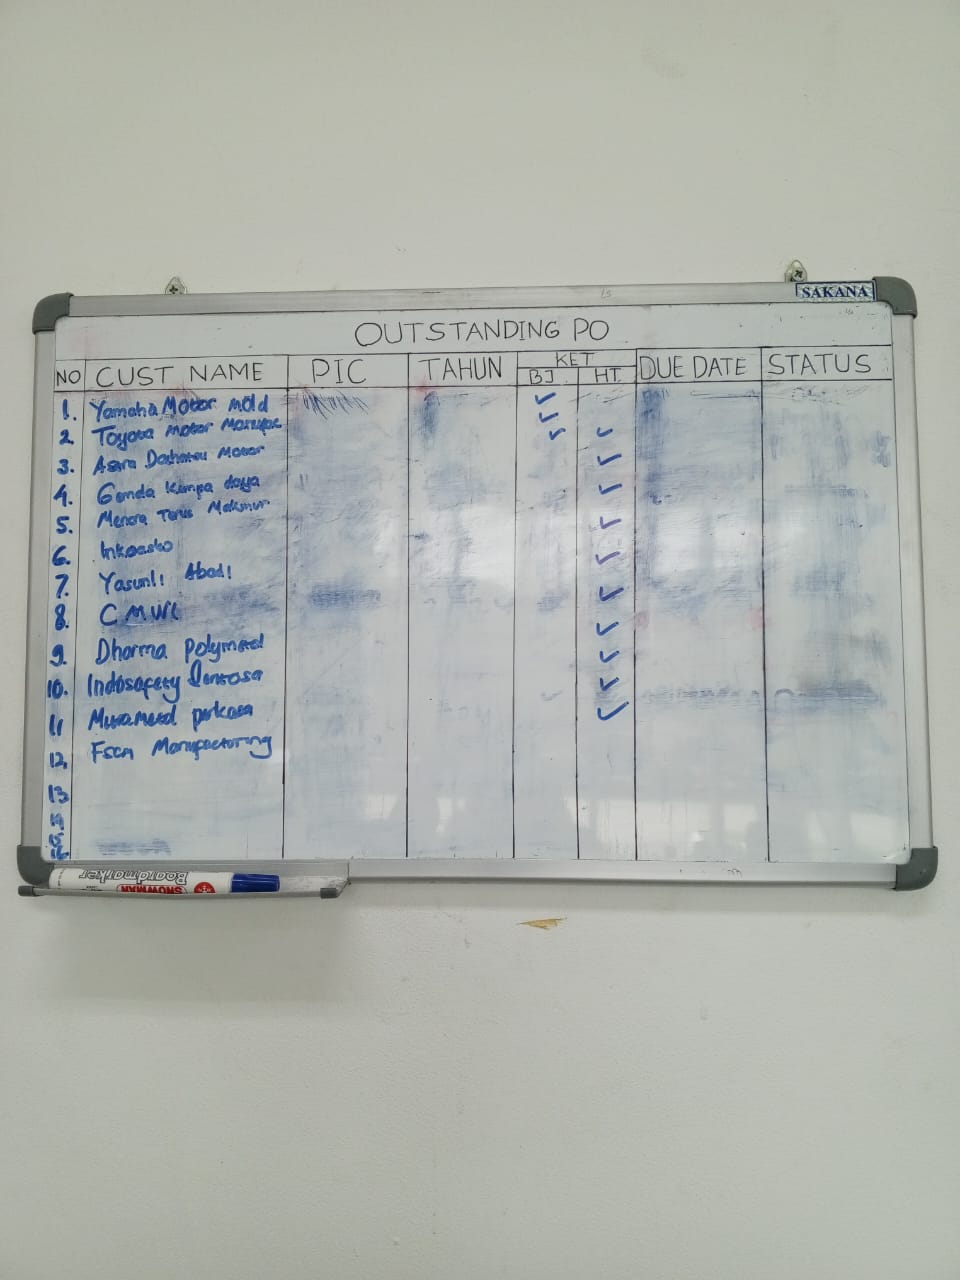 SAKANA
OUTSTANDING PO
NO CUST NAME PIC TAHUN KET DUE DATE STATUS
BJ HT
1. Yamaha Motor Mold ✓
2. Toyota Motor Manufac ✓
3. Daihatsu Motor ✓ ✓
4. Kempa daya ✓
5. Menara Terus Makmur ✓
6. Inkoasku ✓
7. Yasunli Abadi ✓
8. CMWI ✓
9. Dharma polymetal ✓
10. Indosafety Sentosa ✓
11 perkasa ✓
12. Fscm Manufacturing ✓
13
14
15
16
SNOWMAN
Boardmarker